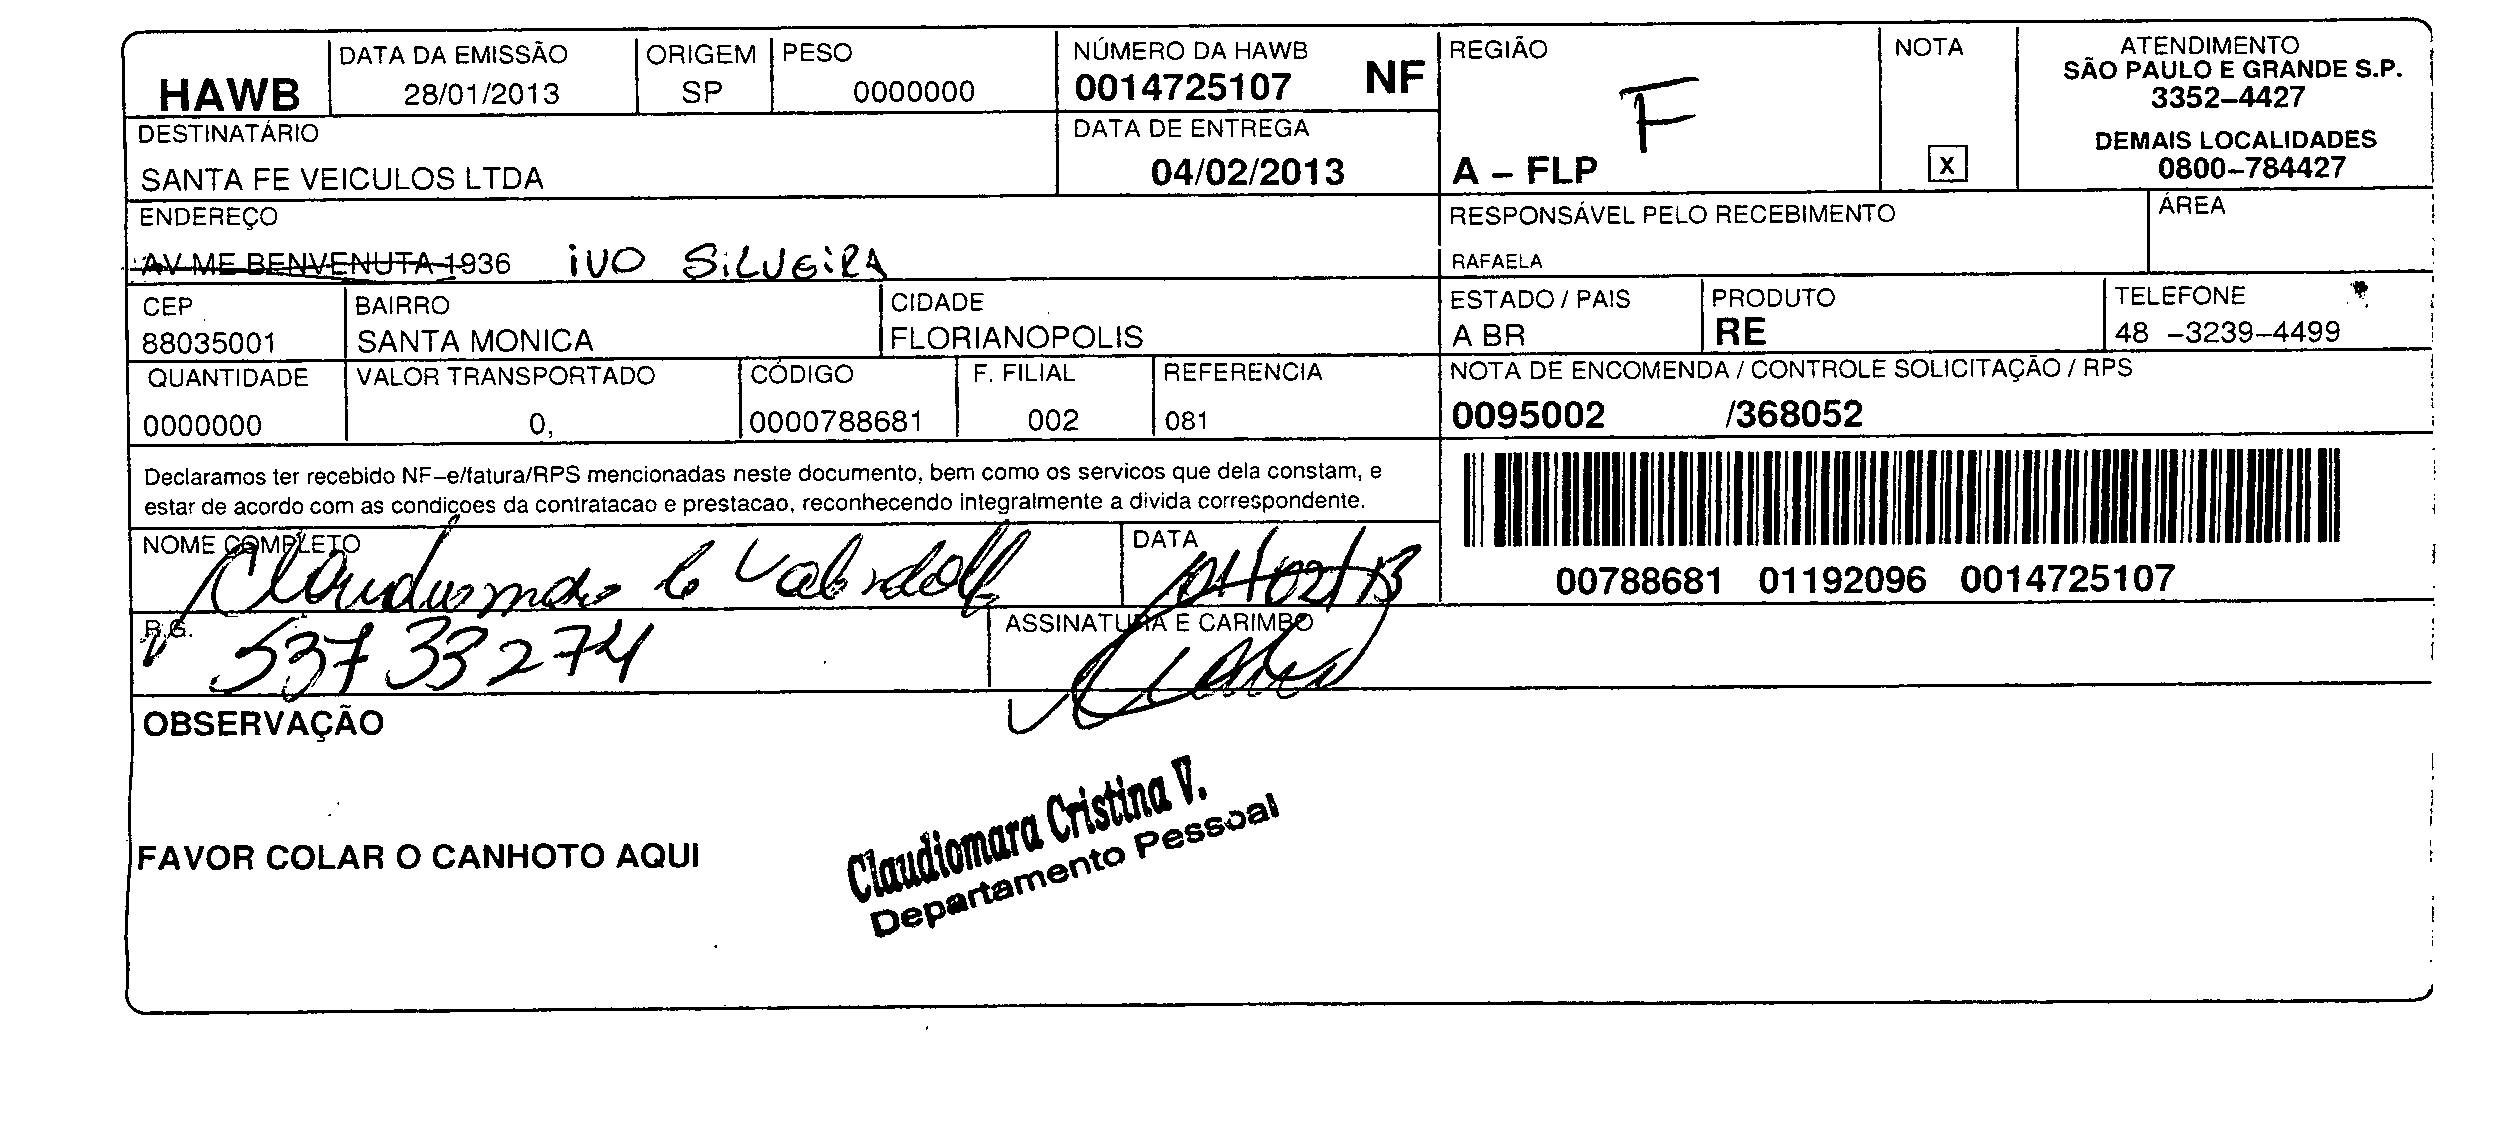 HAWB
DATA DA EMISSÃO
28/01/2013
ORIGEM
SP
PESO
0000000
NÚMERO DA HAWB
0014725107 NF
REGIÃO
F
A – FLP
NOTA
X
ATENDIMENTO
SÃO PAULO E GRANDE S.P.
3352–4427
DEMAIS LOCALIDADES
0800–784427
DESTINATÁRIO
SANTA FE VEICULOS LTDA
DATA DE ENTREGA
04/02/2013
ENDEREÇO
AV ME BENVENUTA 1936 IVO SILVEIRA
RESPONSÁVEL PELO RECEBIMENTO
RAFAELA
ÁREA
CEP
88035001
BAIRRO
SANTA MONICA
CIDADE
FLORIANOPOLIS
ESTADO / PAIS
A BR
PRODUTO
RE
TELEFONE
48 –3239–4499
QUANTIDADE
0000000
VALOR TRANSPORTADO
0,
CÓDIGO
0000788681
F. FILIAL
002
REFERENCIA
081
NOTA DE ENCOMENDA / CONTROLE SOLICITAÇÃO / RPS
0095002 /368052
Declaramos ter recebido NF–e/fatura/RPS mencionadas neste documento, bem como os servicos que dela constam, e
estar de acordo com as condiçoes da contratacao e prestacao, reconhecendo integralmente a divida correspondente.
00788681 01192096 0014725107
NOME COMPLETO
DATA
04/02/13
R.G.
53733274
ASSINATURA E CARIMBO
OBSERVAÇÃO
Claudiomara Cristina V.
Departamento Pessoal
FAVOR COLAR O CANHOTO AQUI